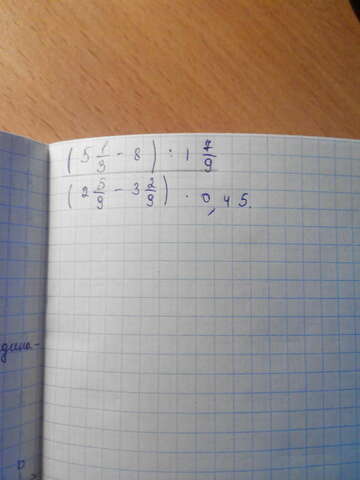 (5 1/3 - 8) : 1 7/9
(2 5/9 - 3 2/9) · 0,45.
дина-